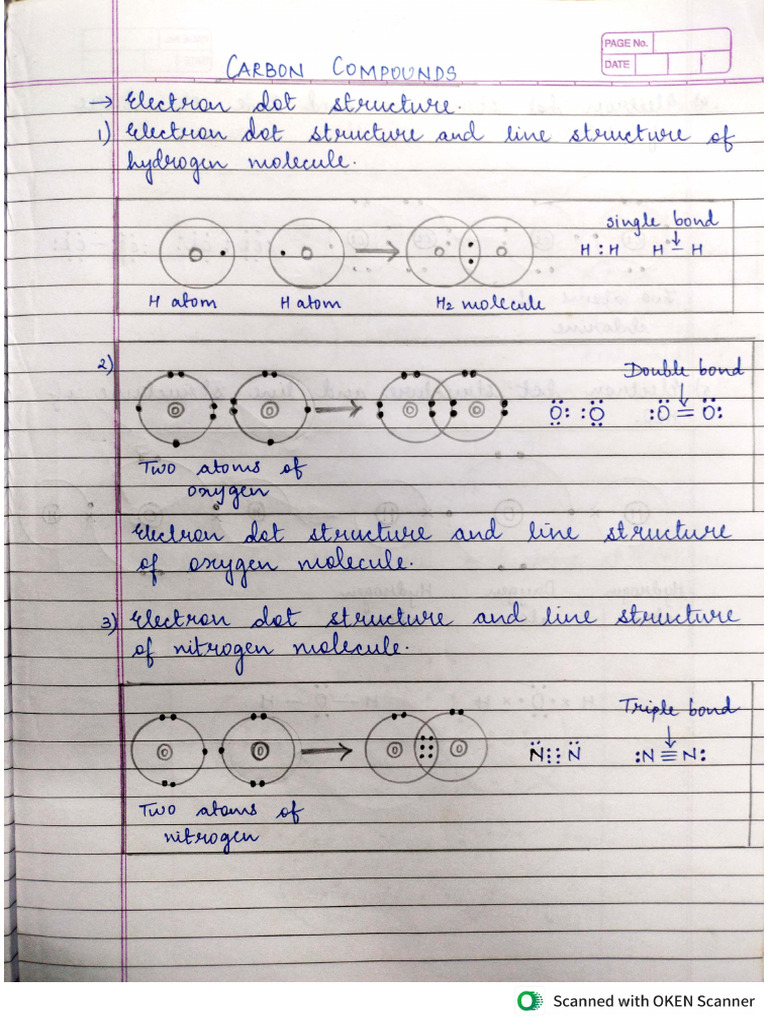 PAGE No.
DATE
CARBON COMPOUNDS
→ Electron dot structure.
1) Electron dot structure and line structure of
hydrogen molecule.
single bond
H : H H – H
H atom H atom H2 molecule
2)
Double bond
:Ö = Ö:
Two atoms of
oxygen
Electron dot structure and line structure
of oxygen molecule.
3) Electron dot structure and line structure
of nitrogen molecule.
Triple bond
:N ≡ N:
Two atoms of
nitrogen
Scanned with OKEN Scanner